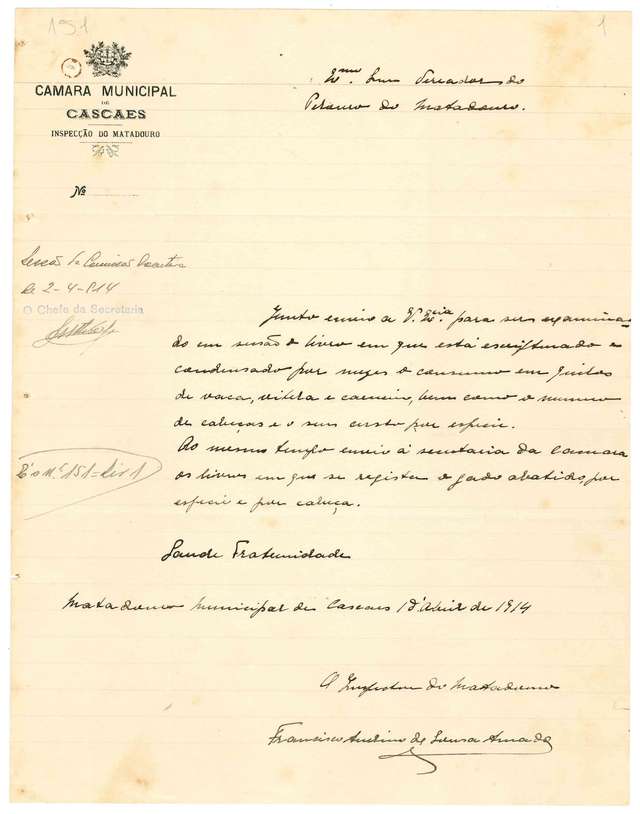 151
1
CAMARA MUNICIPAL
DE
CASCAES
INSPECÇÃO DO MATADOURO
Nº
Exmo Snr Vereador do
Pelouro do Matadouro.
Sessão da Comissão Executiva
de 2-4-914
O Chefe da Secretaria
Junto envio a V. Exª para ser examina-
do em sessão o livro em que está escripturado e
condensado por mezes o consumo em
de vaca, vitela e carneiro, bem como o numero
de cabeças e o seu custo por especie.
Ao mesmo tempo envio á secretaria da Camara
os livros em que se registou o gado abatido, por
especie e por cabeça.
nº 151
Saude Fraternidade
Matadouro Municipal de Cascaes 1 d'Abril de 1914
O Inspector do Matadouro
Francisco de Sousa Amado